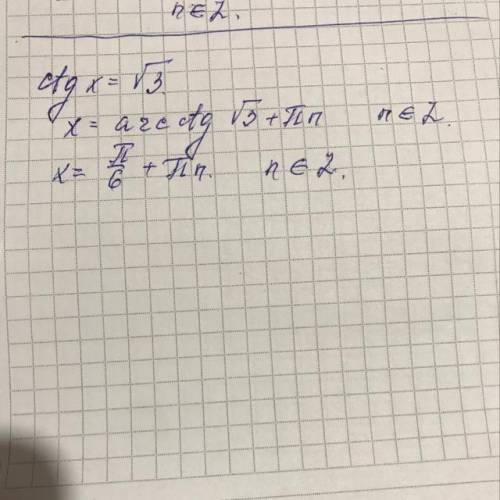 n∈Z.
ctg x = √3.
x = arcctg √3 + πn n∈Z.
x = π/6 + πn. n∈Z.